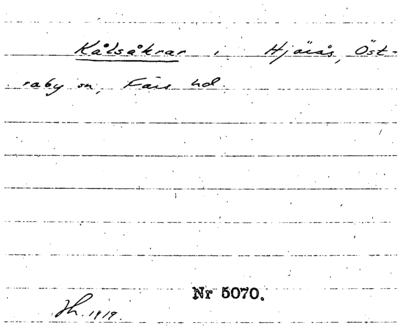 Kålsåkrar i Hjärås, Öst-
raby sn, Färs hd.
Nr 5070.
1919.